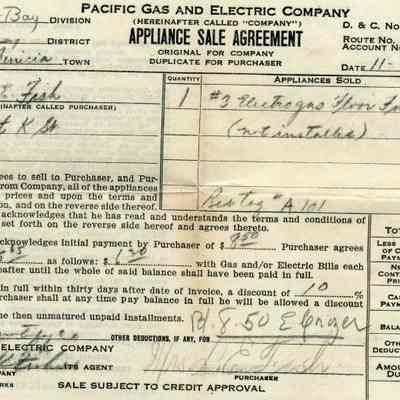 PACIFIC GAS AND ELECTRIC COMPANY
Bay DIVISION (HEREINAFTER CALLED "COMPANY") D. & C. No
APPLIANCE SALE AGREEMENT
DISTRICT ORIGINAL FOR COMPANY ROUTE NO.
TOWN DUPLICATE FOR PURCHASER ACCOUNT NO
DATE 11-
QUANTITY APPLIANCES SOLD
E. Fish 1 #3 Electrogas Floor
(INAFTER CALLED PURCHASER)
K St (not installed)
ees to sell to Purchaser, and Pur-
rom Company, all of the appliances
prices and upon the terms and
on, and on the reverse side hereof. Tag # A 101
acknowledges that he has read and understands the terms and conditions of
set forth on the reverse side hereof and agrees thereto.
cknowledges initial payment by Purchaser of $ 8.50 Purchaser agrees
as follows: $ with Gas and/or Electric Bills each
after until the whole of said balance shall have been paid in full.
in full within thirty days after date of invoice, a discount of 10 %
rchaser shall at any time pay balance in full he will be allowed a discount
he then unmatured unpaid installments.
OTHER DEDUCTIONS, IF ANY, FOR Pd 8.50
ELECTRIC COMPANY
ITS AGENT
PURCHASER
SALE SUBJECT TO CREDIT APPROVAL
TOT
LESS
OF C
PAYM
NE
CONTR
PRIC
CA
PAYM
BALA
OTHE
DEDUCT
AMOUN
DU